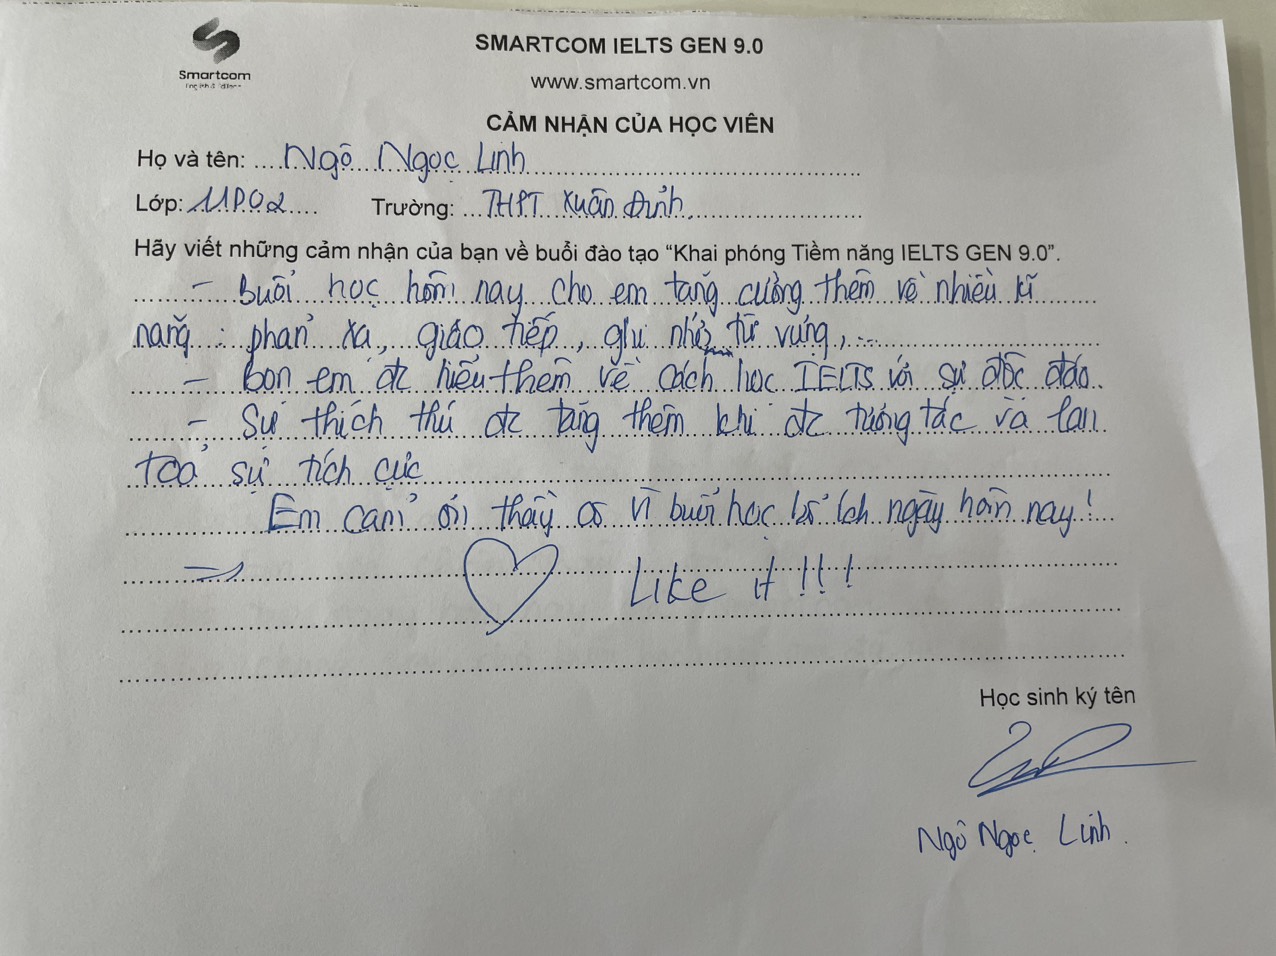 Smartcom
SMARTCOM IELTS GEN 9.0
www.smartcom.vn
CẢM NHẬN CỦA HỌC VIÊN
Họ và tên: Ngô Ngọc Linh
Lớp: 11D02 Trường: THPT Xuân Đỉnh.
Hãy viết những cảm nhận của bạn về buổi đào tạo “Khai phóng Tiềm năng IELTS GEN 9.0”.
- Buổi học hôm nay cho em tăng cường thêm về nhiều kĩ
năng : phản xạ, giáo tiếp, ghi nhớ từ vựng,...
- Bọn em đc hiểu thêm về cách học IELTS với sự độc đáo
- Sự thích thú đc tăng thêm khi đc tương tác và lan
toả sự tích cực
Em cảm ơn thầy cô vì buổi học bổ ích ngày hôm nay!
Like it!!!
Học sinh ký tên
Ngô Ngọc Linh.